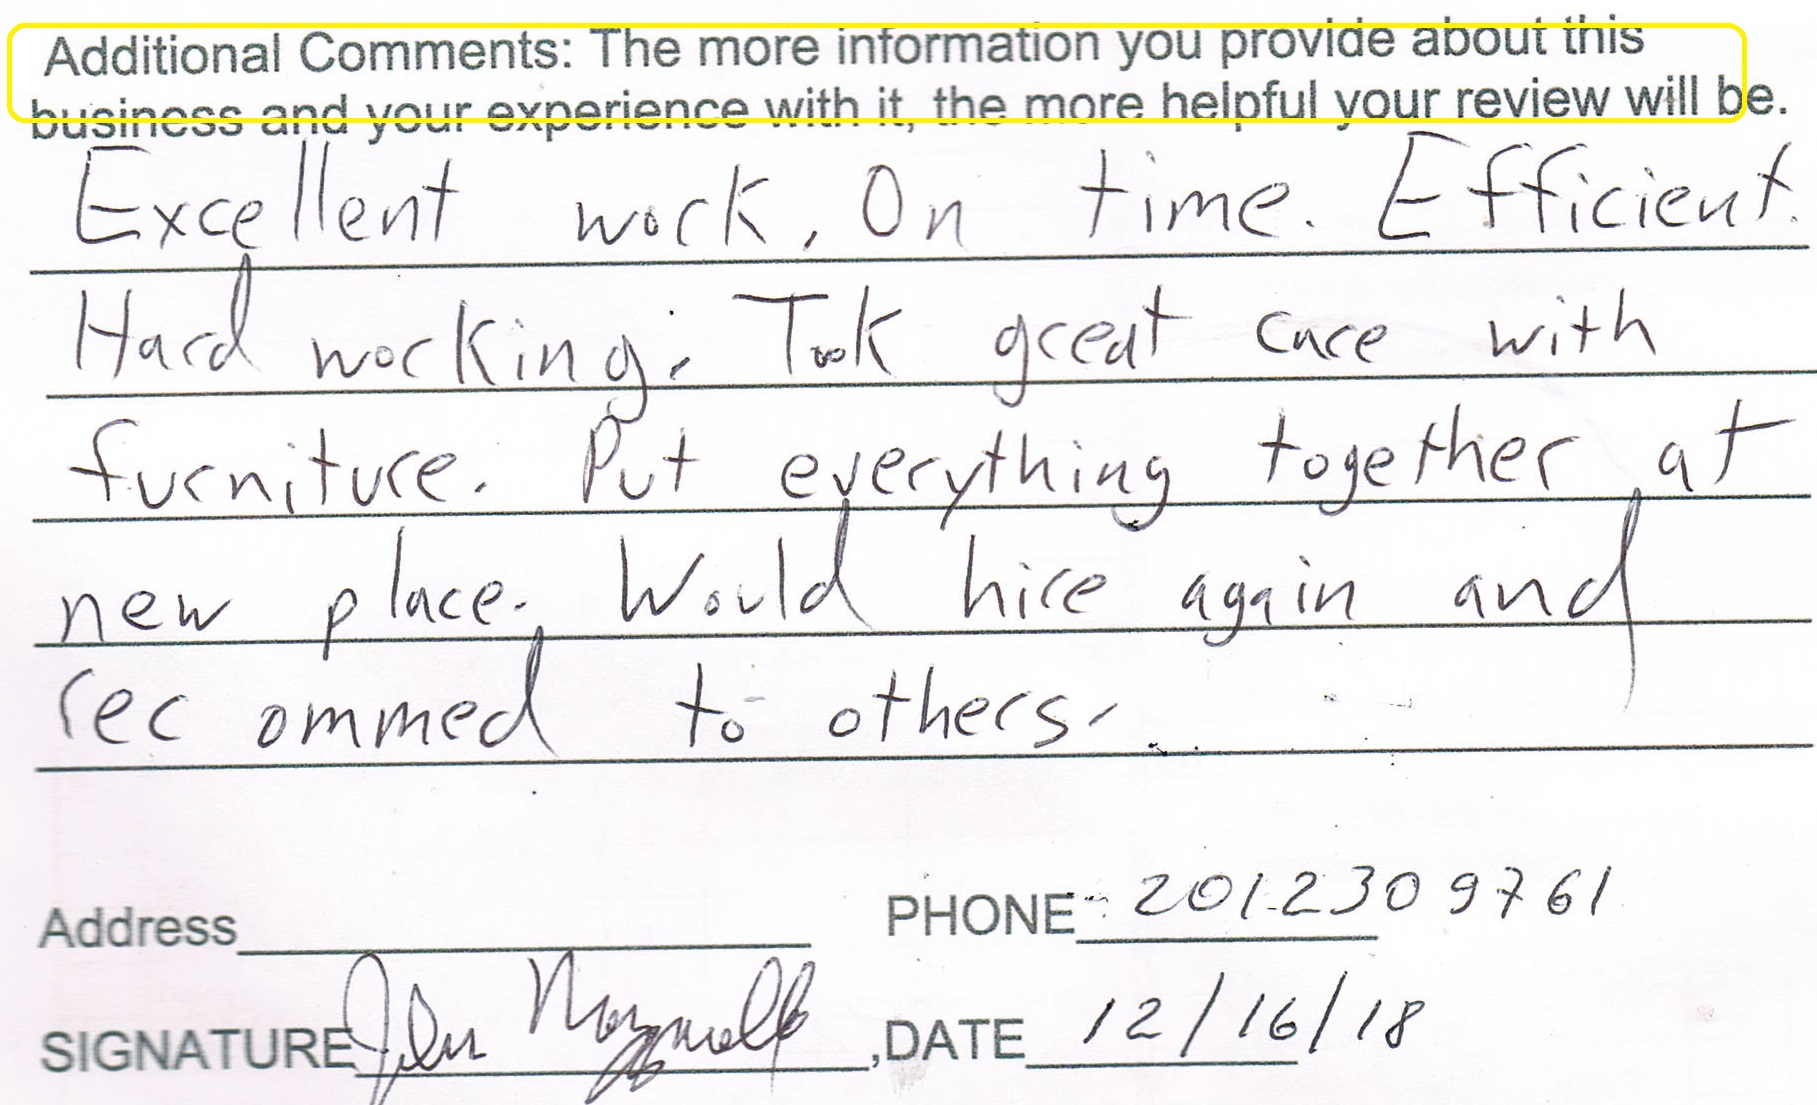 Additional Comments: The more information you provide about this
business and your experience with it, the more helpful your review will be.
Excellent work. On time. Efficient.
Hard working. Took great care with
furniture. Put everything together at
new place. Would hire again and
recommed to others.
Address PHONE 2012309761
SIGNATURE John , DATE 12/16/18